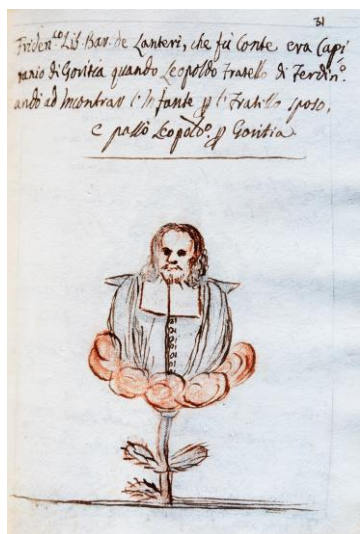 31
Friden.co Lib. Bar. de Lanteri, che fù Conte era Capi
tanio di Goritia quando Leopoldo Fratello di Ferdin.o
andò ad Incontrar l'Infante p l'Fratello sposo,
e passò Leopold.o p Goritia